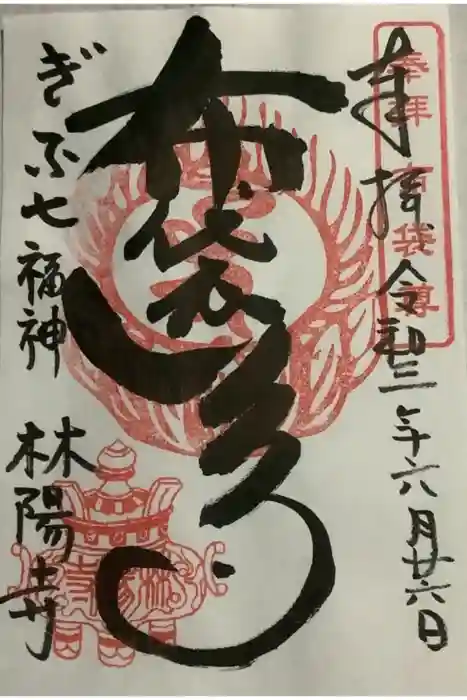 奉拝 令和三年六月廿六日
奉拝 布袋尊
布袋尊
ぎふ七福神 林陽寺
林陽寺